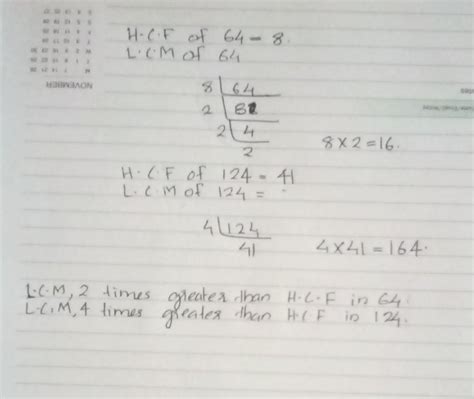 H.C.F of 64 = 8.
L.C.M of 64
8 64
2 8
2 4
2
8 x 2 = 16.
H.C.F of 124 = 41
L.C.M of 124 =
4 124
41
4 x 41 = 164.
L.C.M, 2 times greater than H.C.F in 64.
L.C.M, 4 times greater than H.C.F in 124.
NOVEMBER